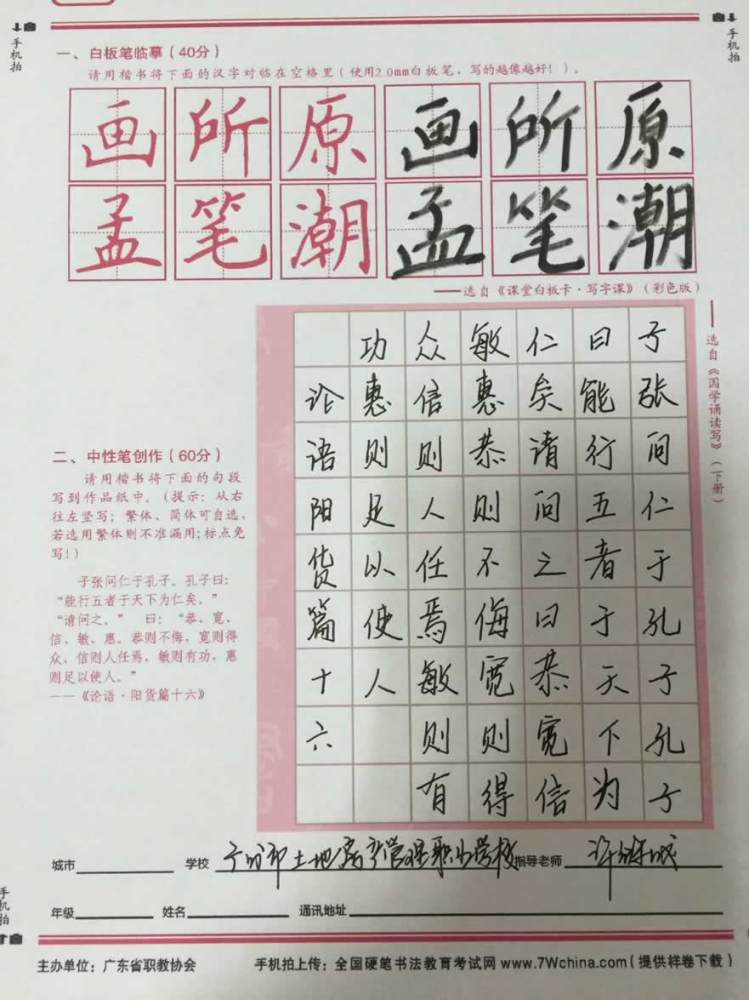 手机拍
手机拍
一、白板笔临摹（40分）
请用楷书将下面的汉字对临在空格里（使用2.0mm白板笔，写的越像越好！）。
画所原画所原
孟笔潮孟笔潮
——选自《课堂白板卡·写字课》（彩色版）
——选自《国学诵读写》（下册）
二、中性笔创作（60分）
请用楷书将下面的句段
写到作品纸中。（提示：从右
往左竖写；繁体、简体可自选，
若选用繁体则不准漏用；标点免
写！）
子张问仁于孔子。孔子曰：
“能行五者于天下为仁矣。”
“请问之。” 曰：“恭、宽、
信、敏、惠。恭则不侮，宽则得
众，信则人任焉，敏则有功，惠
则足以使人。”
——《论语·阳货篇十六》
子张问仁于孔子孔子
曰能行五者于天下为
仁矣请问之曰恭宽信
敏惠恭则不侮宽则得
众信则人任焉敏则有
功惠则足以使人
论语阳货篇十六
城市 学校 土地房产管理职业学校 指导老师 许
年级 姓名 通讯地址
手机拍
主办单位：广东省职教协会 手机拍上传：全国硬笔书法教育考试网 www.7Wchina.com（提供样卷下载）